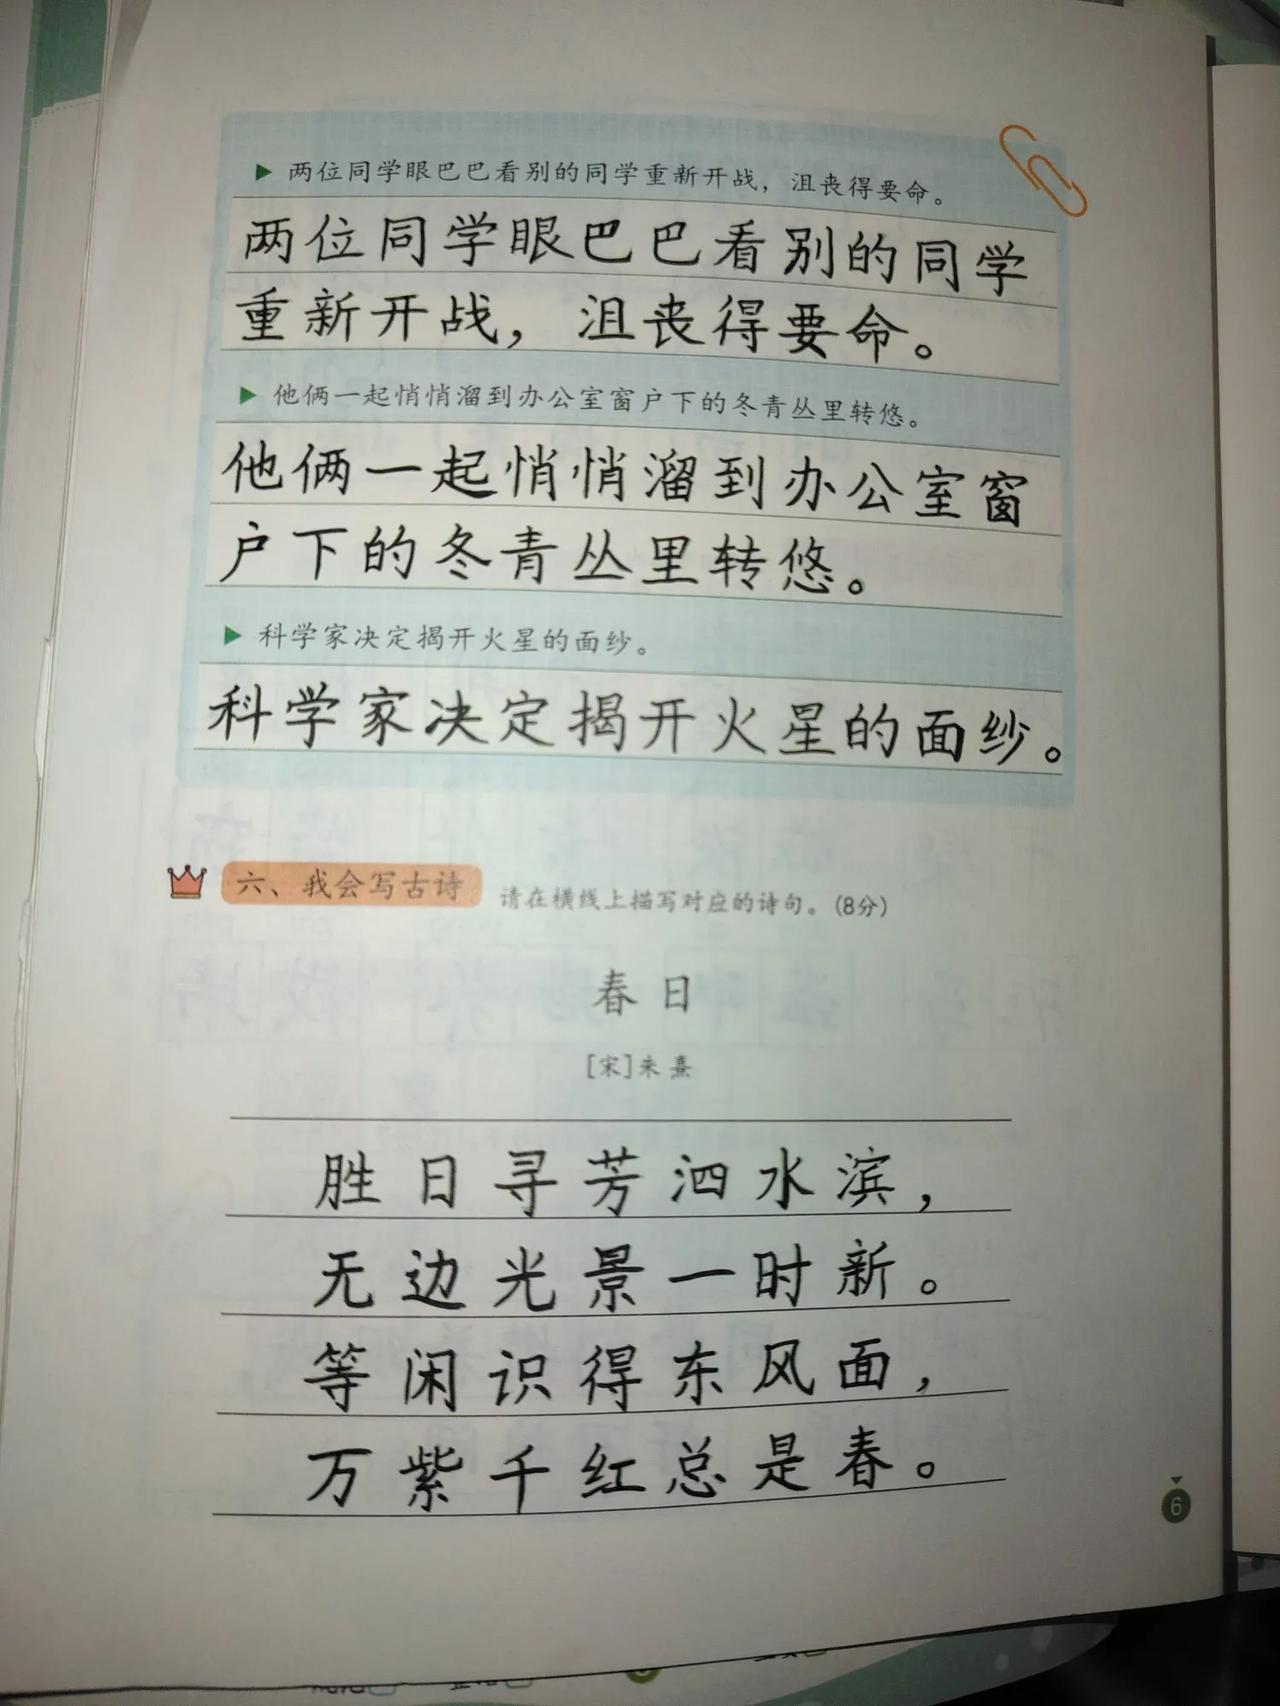 ▶ 两位同学眼巴巴看别的同学重新开战，沮丧得要命。
两位同学眼巴巴看别的同学
重新开战，沮丧得要命。
▶ 他俩一起悄悄溜到办公室窗户下的冬青丛里转悠。
他俩一起悄悄溜到办公室窗
户下的冬青丛里转悠。
▶ 科学家决定揭开火星的面纱。
科学家决定揭开火星的面纱。
六、我会写古诗 请在横线上描写对应的诗句。(8分)
春日
[宋]朱熹
胜日寻芳泗水滨，
无边光景一时新。
等闲识得东风面，
万紫千红总是春。
6